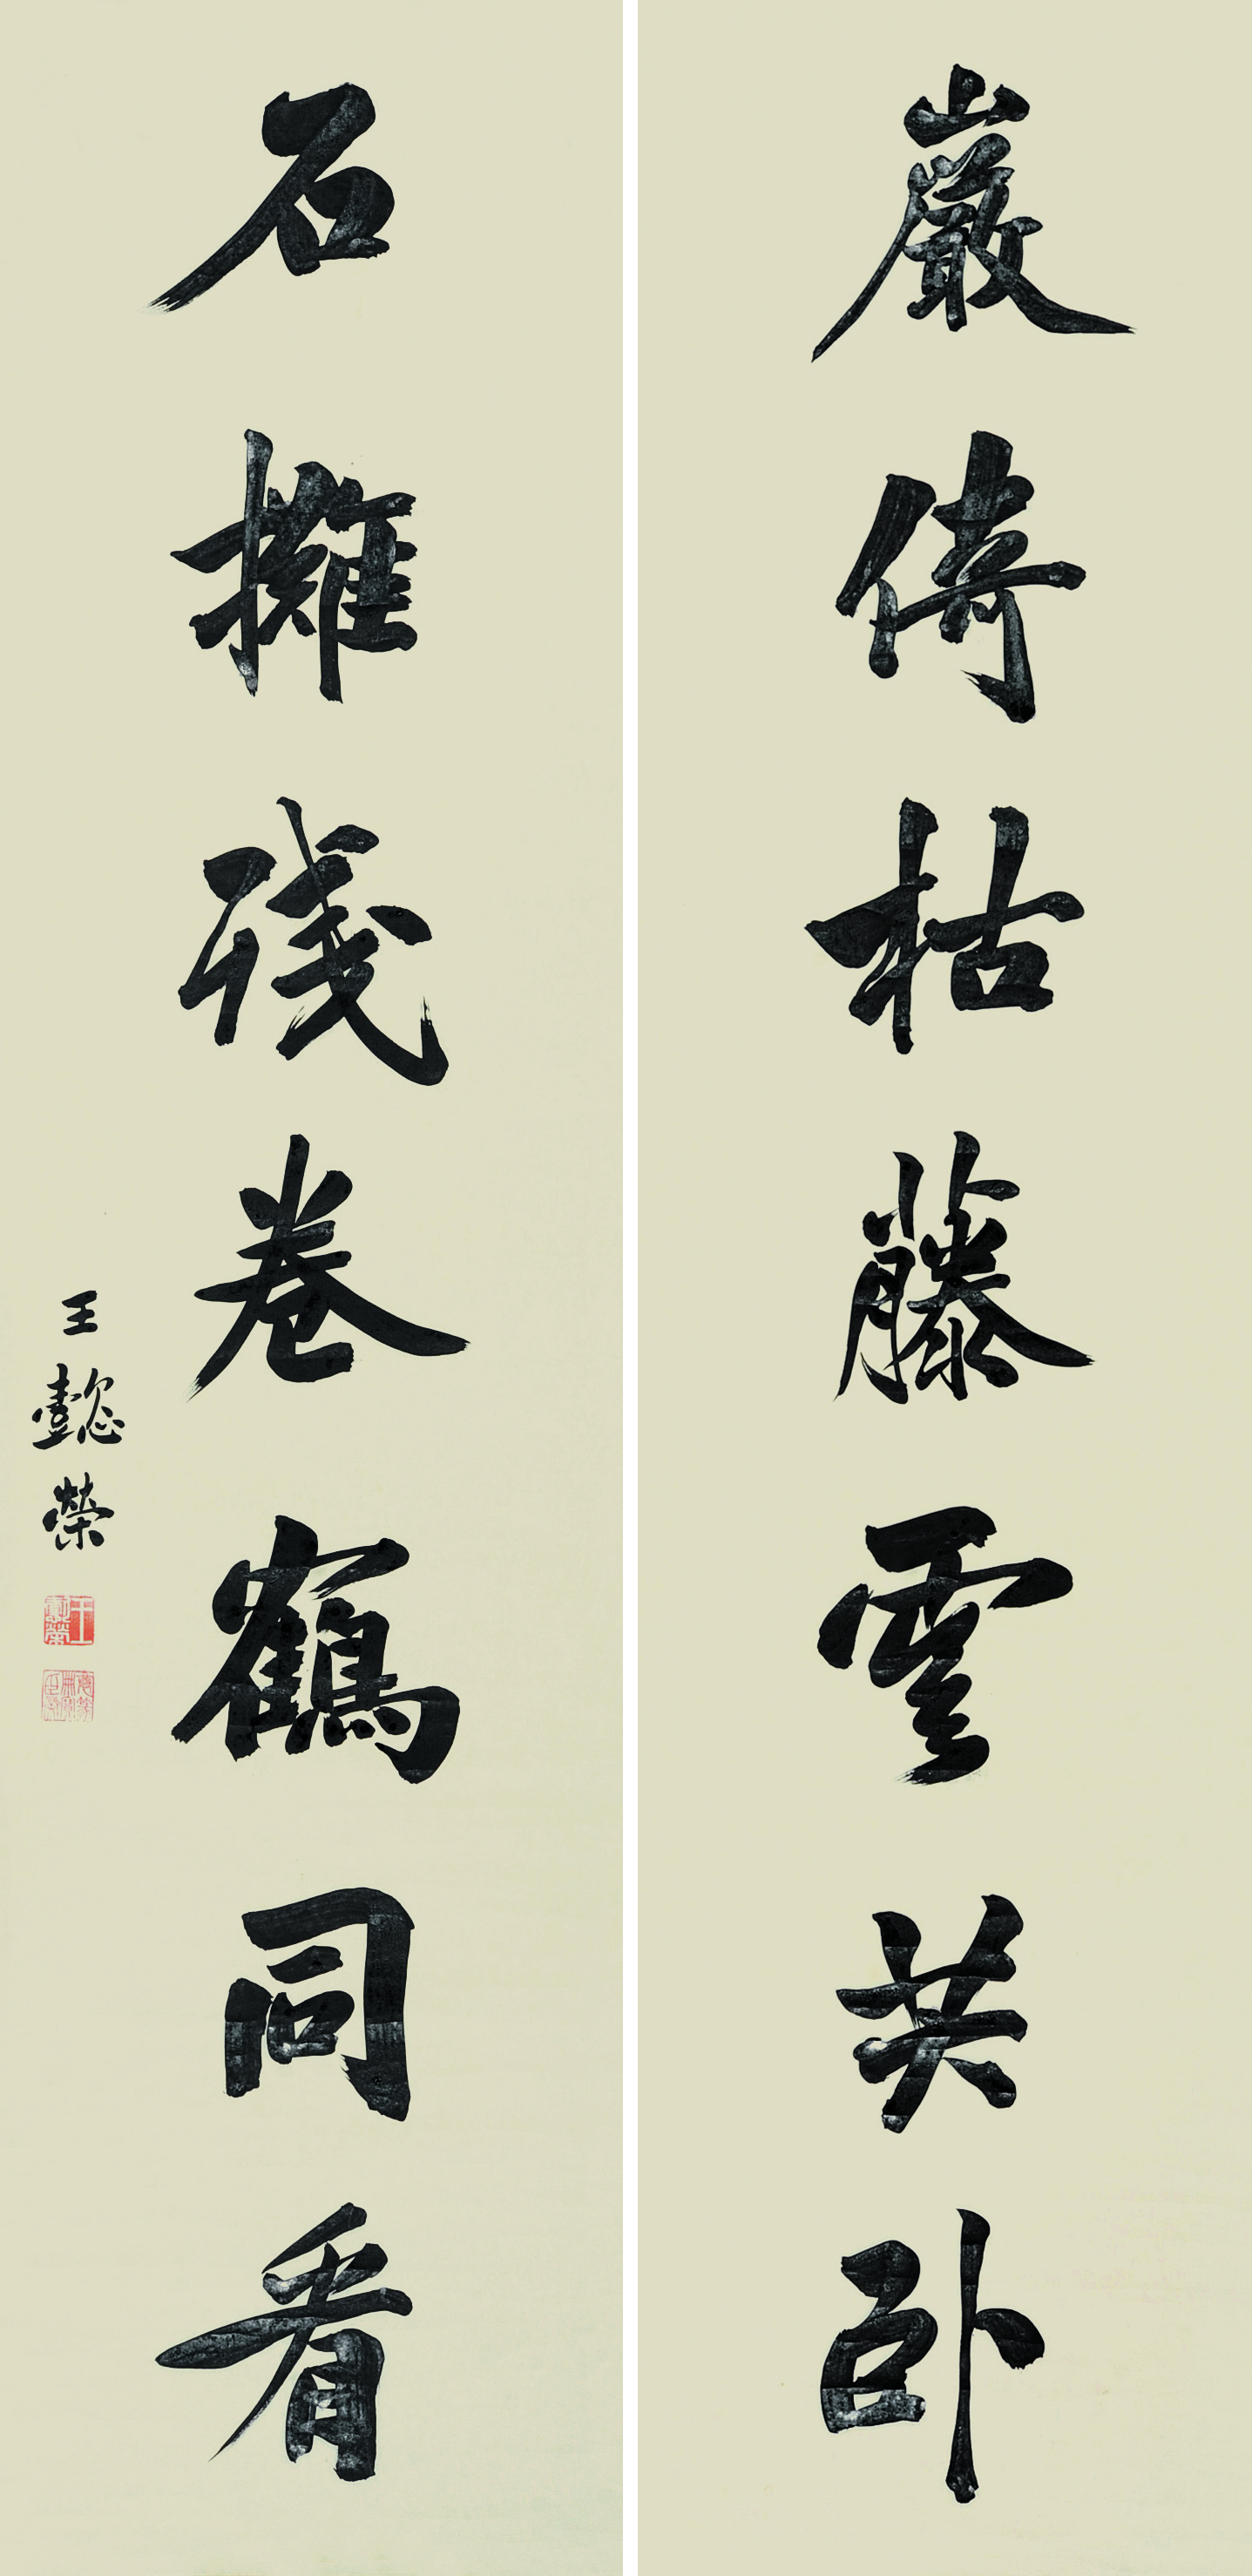 巖倚枯藤雲共卧
石擁殘卷鶴同看
王懿榮
王懿榮